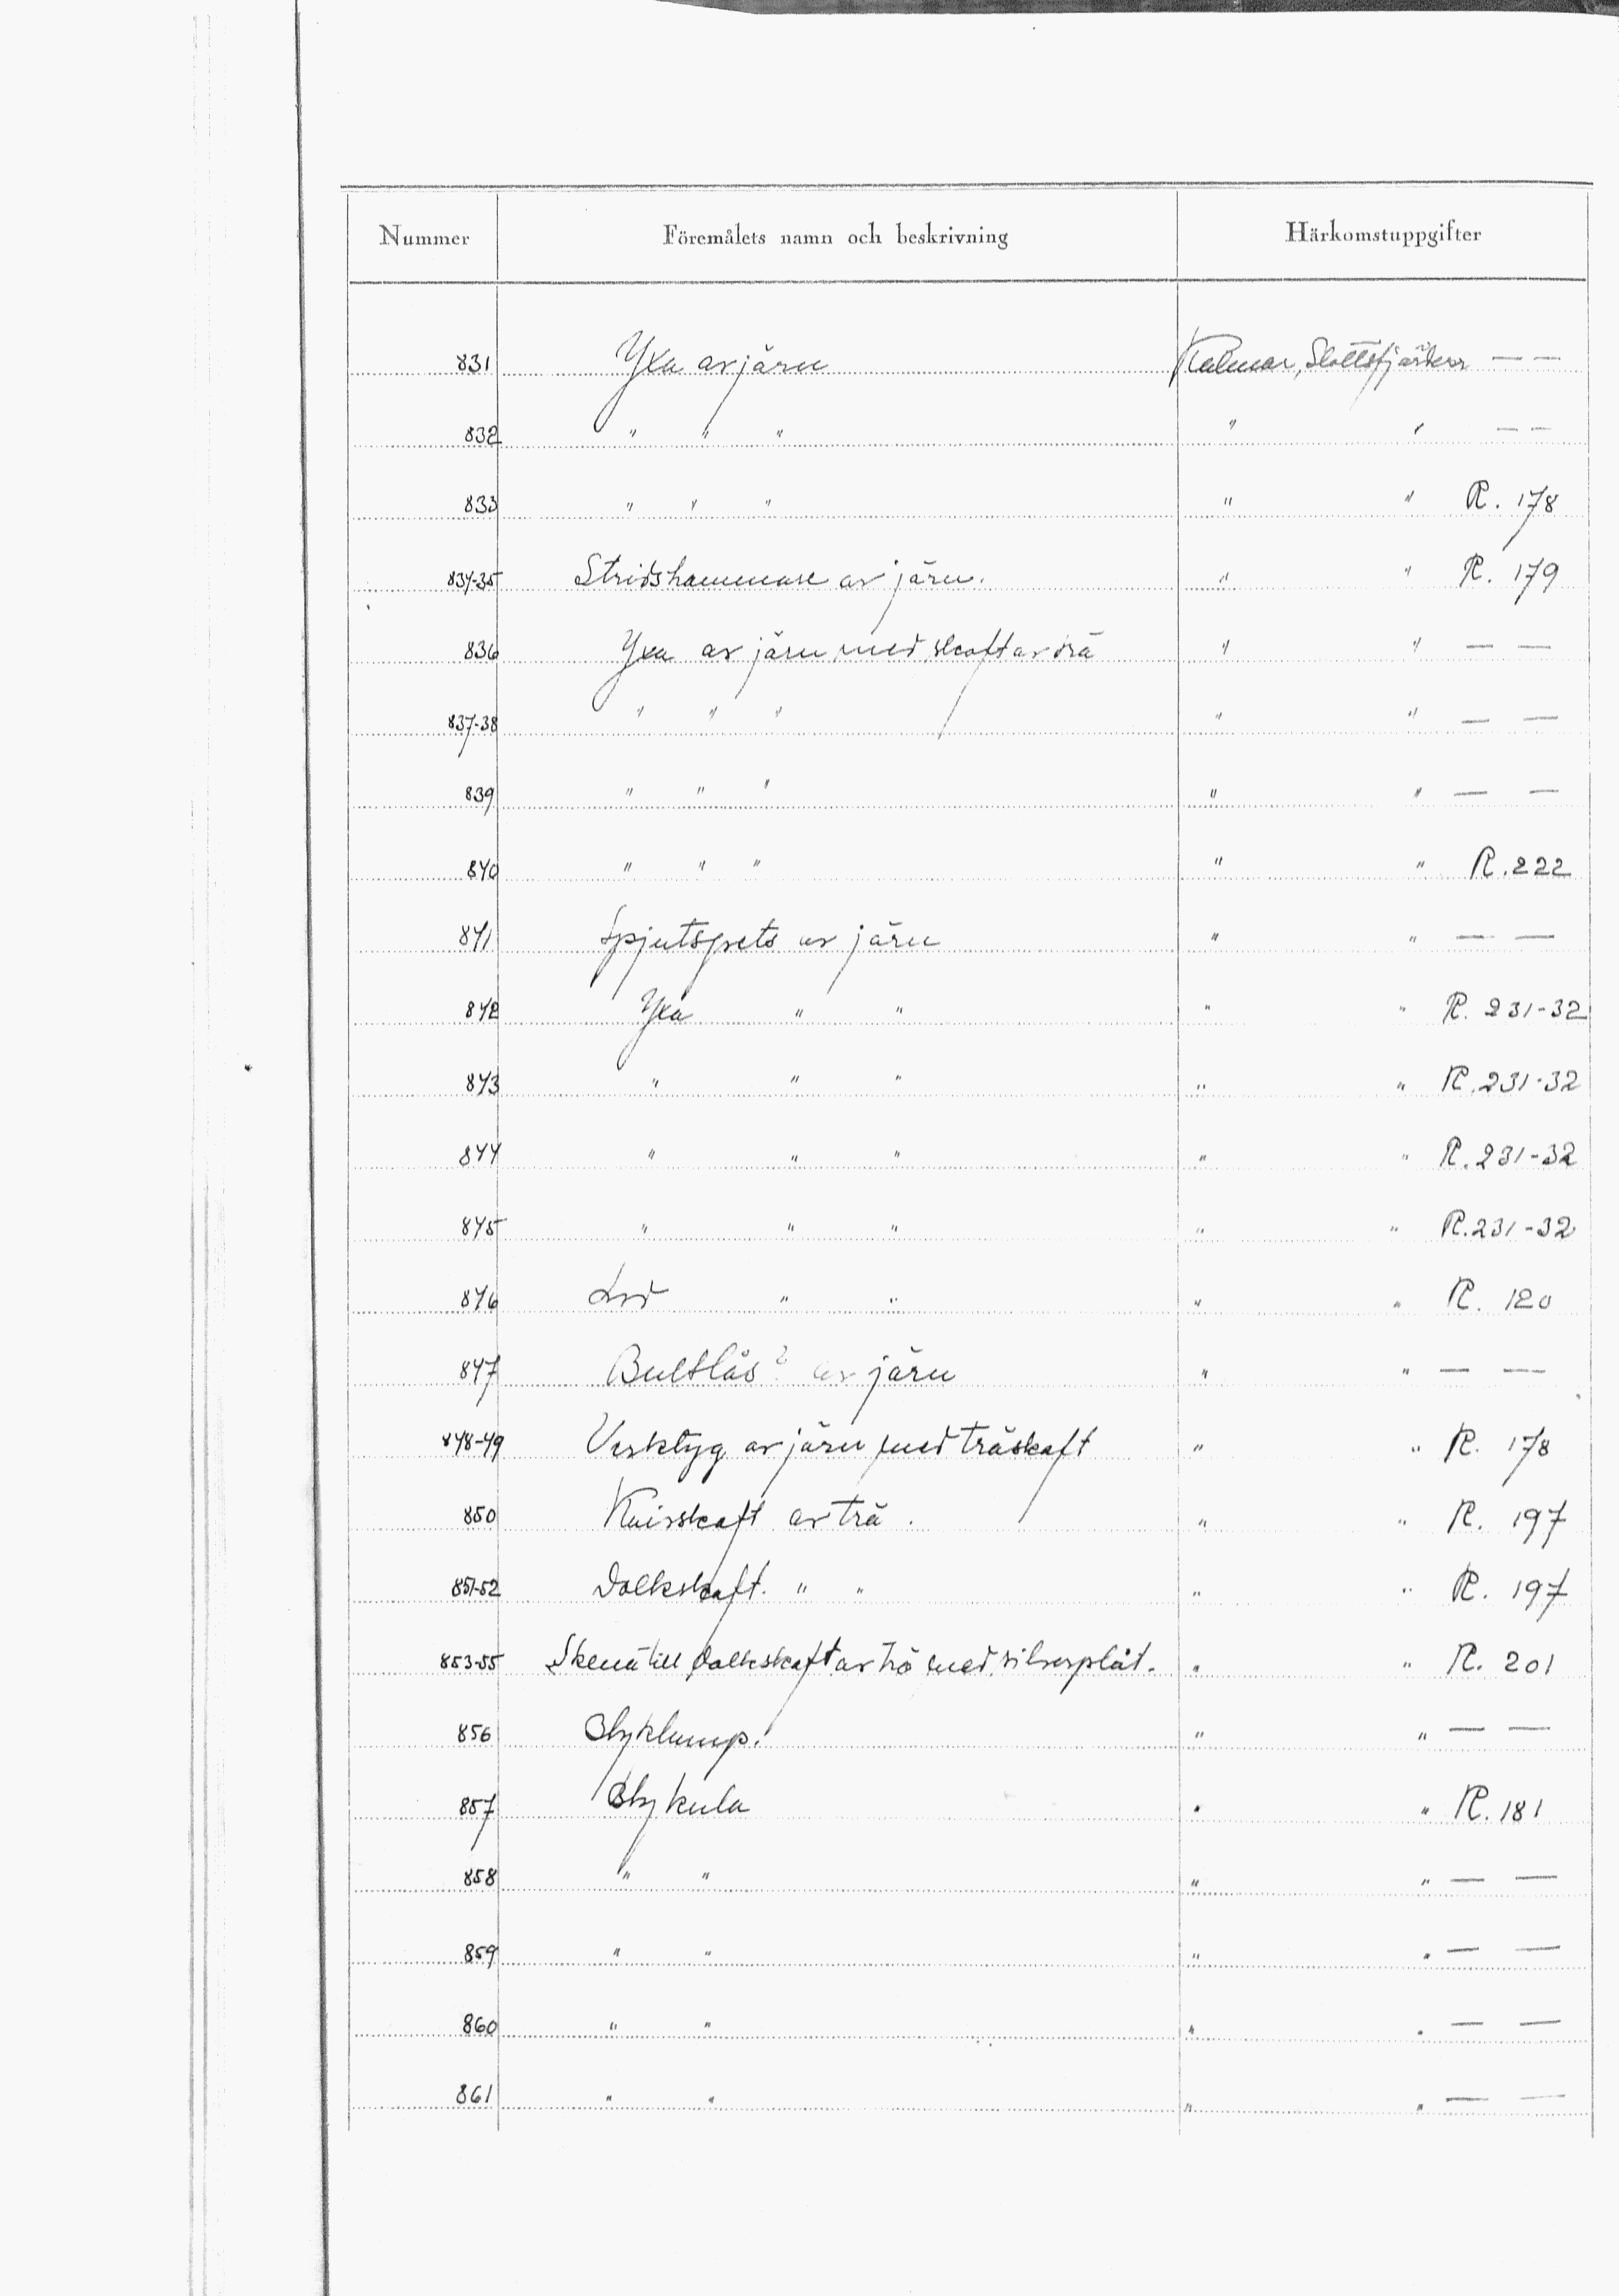 Nummer Föremålets namn och beskrivning Härkomstuppgifter
831 Yxa av järn Kalmar, Slottsfjärden — —
832 " " " " " — —
833 " " " " " R. 178
834-35 Stridshammare av järn. " " R. 179
836 Yxa av järn med skaft av trä " " — —
837-38 " " " " " — —
839 " " " " " — —
840 " " " " " R. 222
841 Spjutspets av järn " " — —
842 Yxa " " " " R. 231-32
843 " " " " " R. 231-32
844 " " " " " R. 231-32
845 " " " " " R. 231-32
846 Lod " " " " R. 120
847 Bultlås? av järn " " — —
848-49 Verktyg av järn med träskaft " " R. 178
850 Knivskaft av trä. " " R. 197
851-52 Dolkskaft. " " " " R. 197
853-55 Skena till dolkskaft av trä med silverplåt. " " R. 201
856 Blyklump. " " — —
857 Blykula " " R. 181
858 " " " " — —
859 " " " " — —
860 " " " " — —
861 " " " " — —